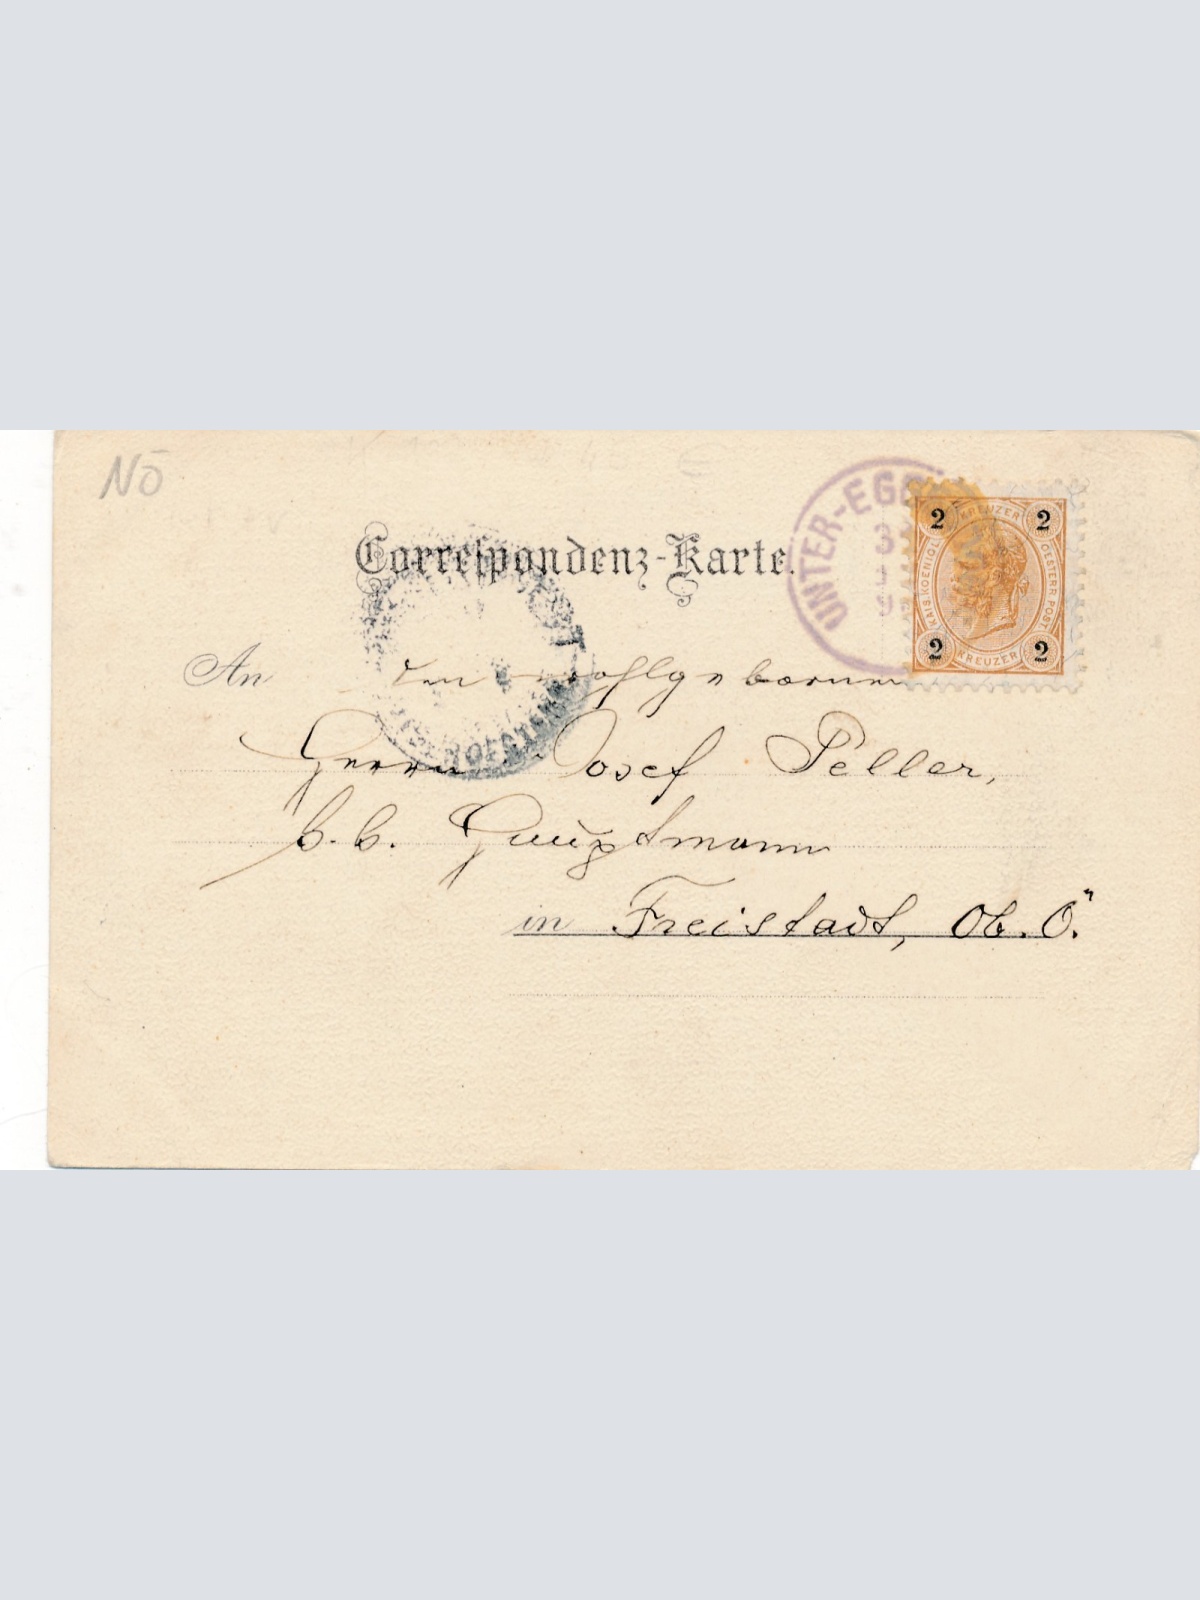 NÖ
Correspondenz-Karte.
UNTER-EG
2 KREUZER 2
KAIS. KOENIGL. OESTERR. POST
2 KREUZER 2
An den wohlgeborenen
Herrn Josef Peller,
k. k. Hauptmann
in Freistadt, Ob. Ö.